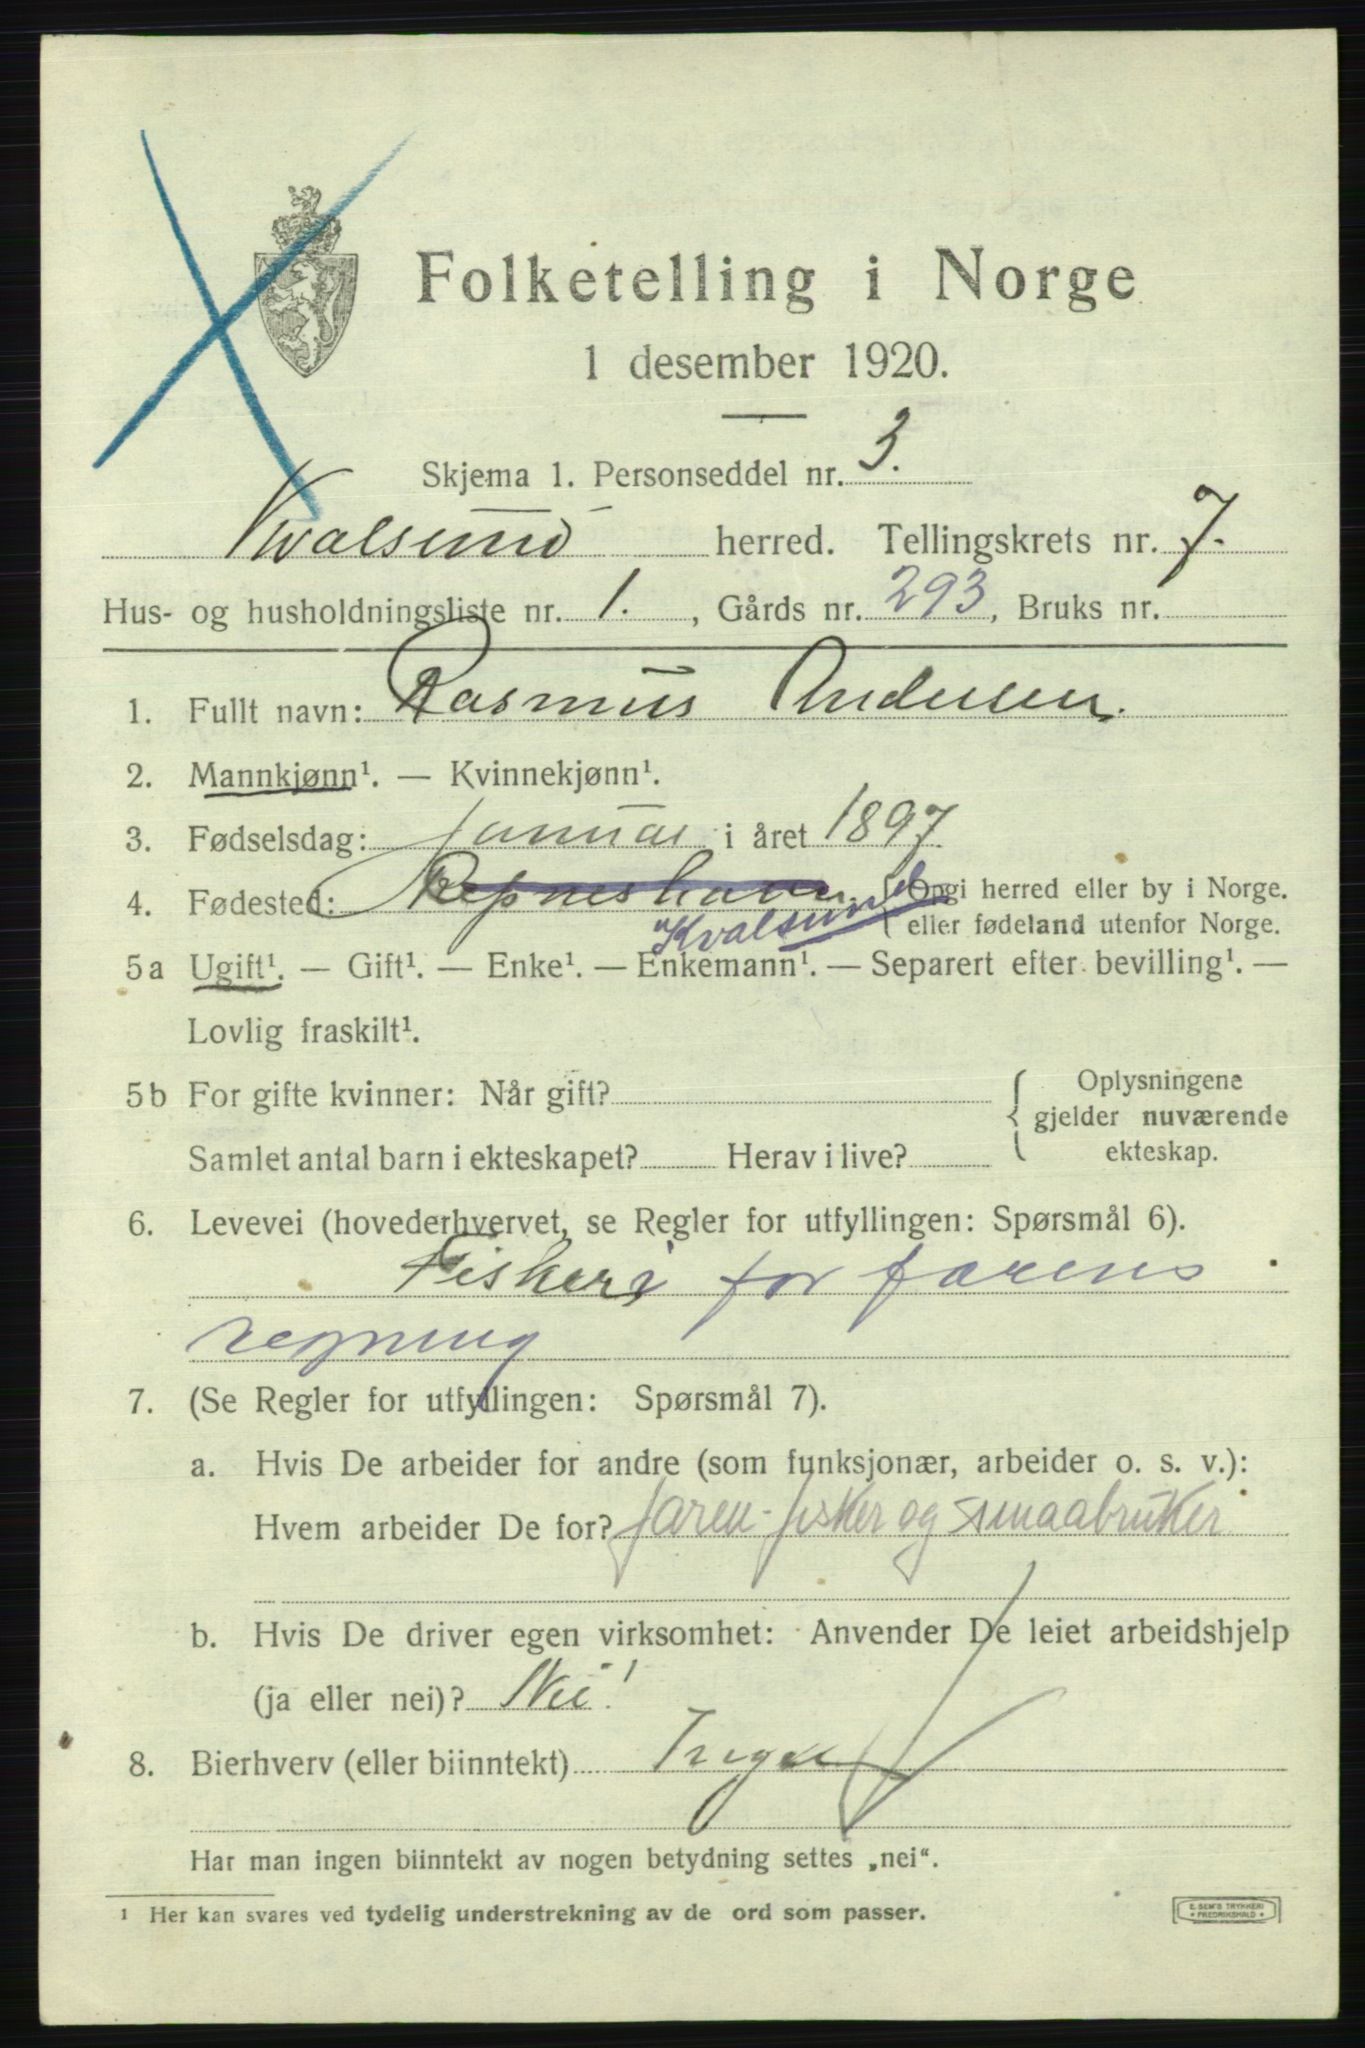 Folketelling i Norge
1 desember 1920.
Skjema 1. Personseddel nr. 3.
Kvalsund herred. Tellingskrets nr. 7.
Hus- og husholdningsliste nr. 1. , Gårds nr. 293, Bruks nr.
1. Fullt navn: Rasmus Andersen.
2. Mannkjønn¹. — Kvinnekjønn¹.
3. Fødselsdag: Januar i året 1897
4. Fødested: {Opgi herred eller by i Norge.
Kvalsund {eller fødeland utenfor Norge.
5a Ugift¹. — Gift¹. — Enke¹. — Enkemann¹. — Separert efter bevilling¹. —
Lovlig fraskilt¹.
5b For gifte kvinner: Når gift? { Oplysningene
gjelder nuværende
Samlet antal barn i ekteskapet? Herav i live? ekteskap.
6. Levevei (hovederhvervet, se Regler for utfyllingen: Spørsmål 6).
Fiskeri for farens
regning
7. (Se Regler for utfyllingen: Spørsmål 7).
a. Hvis De arbeider for andre (som funksjonær, arbeider o. s. v.):
Hvem arbeider De for? faren - fisker og smaabruker
b. Hvis De driver egen virksomhet: Anvender De leiet arbeidshjelp
(ja eller nei)? Nei!
8. Bierhverv (eller biinntekt) Ingen
Har man ingen biinntekt av nogen betydning settes „nei“.
¹ Her kan svares ved tydelig understrekning av de ord som passer.
E. SEM'S TRYKKERI
* FREDRIKSHALD *